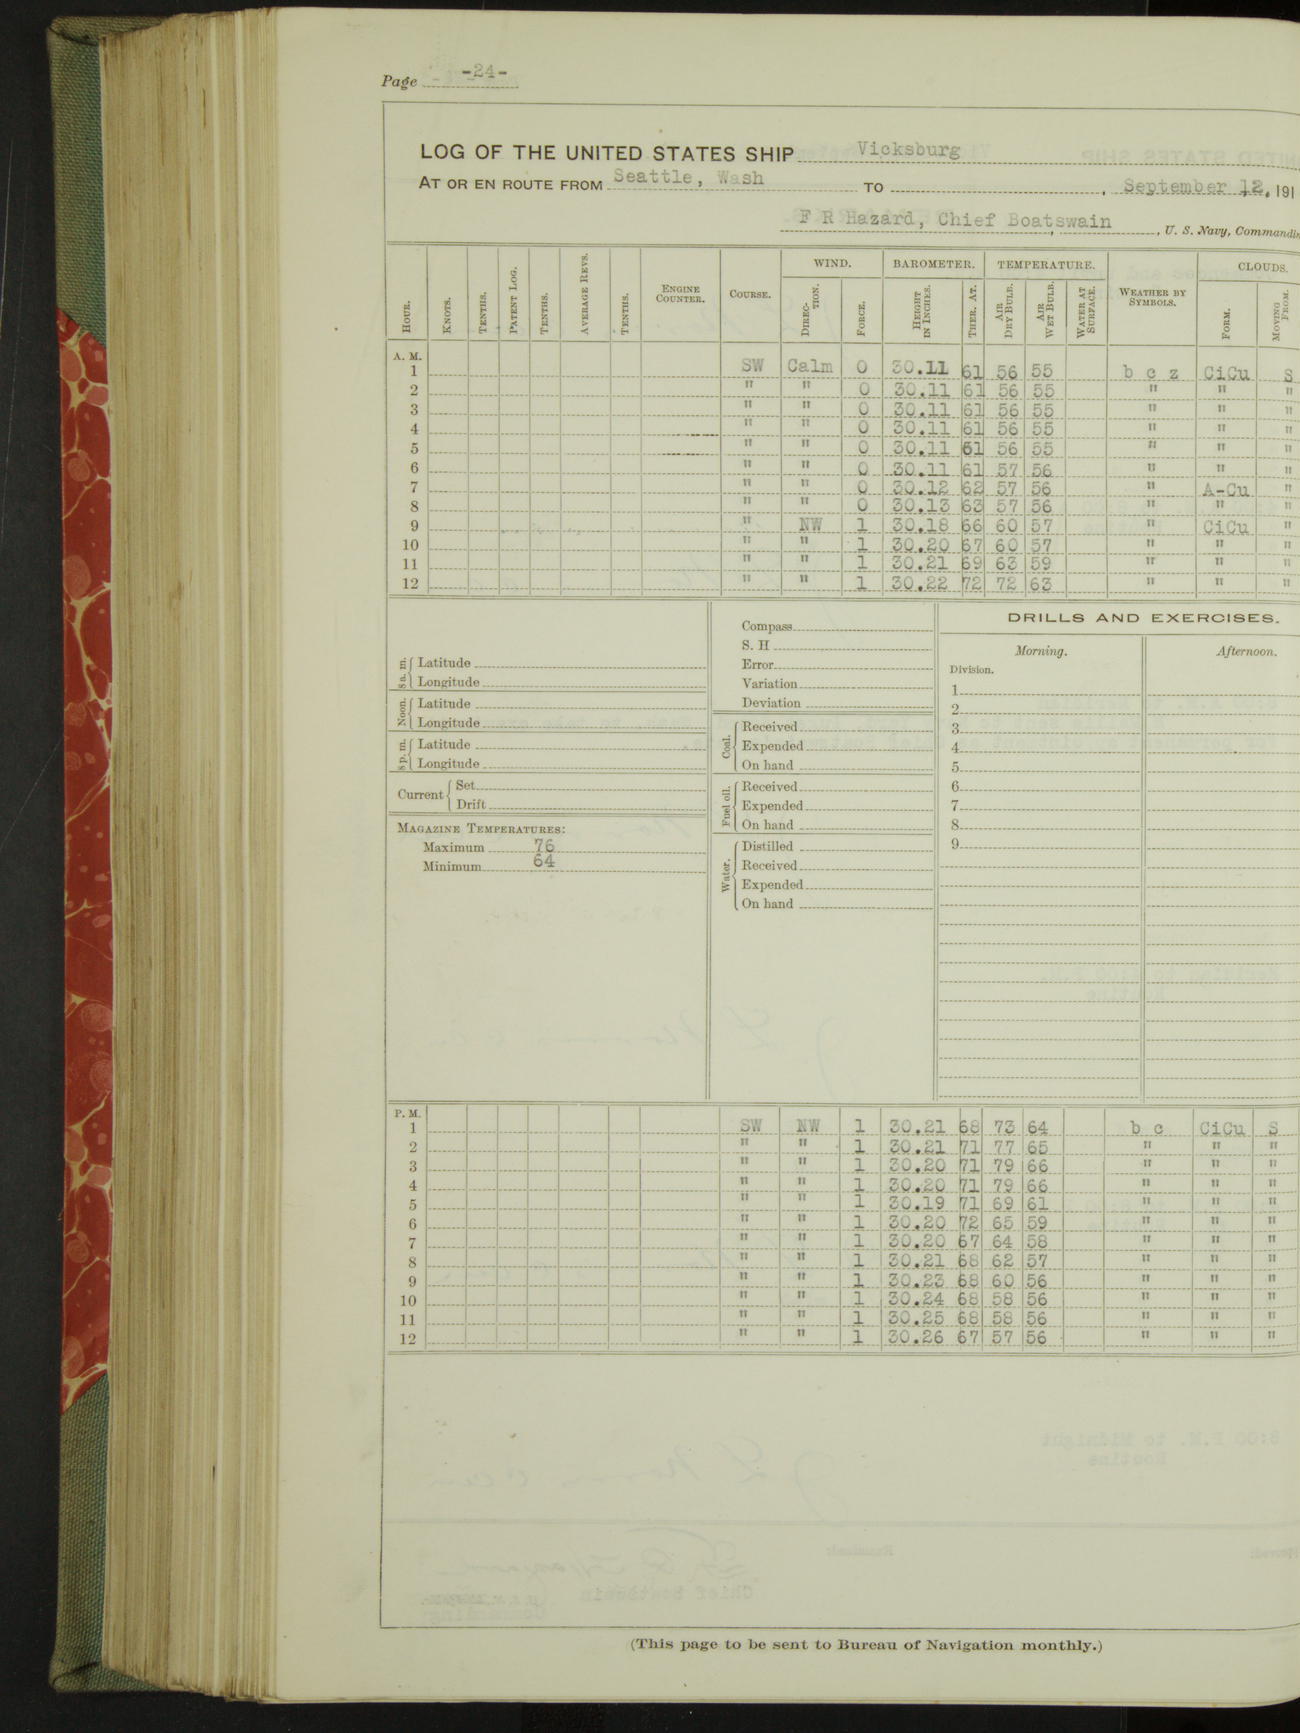 Page -24-
LOG OF THE UNITED STATES SHIP Vicksburg
AT OR EN ROUTE FROM Seattle, Wash TO , September 12, 191
F R Hazard, Chief Boatswain , U. S. Navy, Commandin
HOUR. KNOTS. TENTHS. PATENT LOG. TENTHS. AVERAGE REVS. TENTHS. ENGINE COUNTER. COURSE. WIND. DIRECTION. FORCE. BAROMETER. HEIGHT IN INCHES. THER. AT. TEMPERATURE. AIR DRY BULB. AIR WET BULB. WATER AT SURFACE. WEATHER BY SYMBOLS. CLOUDS. FORM. MOVING FROM.
A. M.
1 SW Calm 0 30.11 61 56 55 b c z CiCu S
2 " " 0 30.11 61 56 55 " " "
3 " " 0 30.11 61 56 55 " " "
4 " " 0 30.11 61 56 55 " " "
5 " " 0 30.11 61 56 55 " " "
6 " " 0 30.11 61 57 56 " " "
7 " " 0 30.12 62 57 56 " A-Cu "
8 " " 0 30.13 63 57 56 " " "
9 " NW 1 30.18 66 60 57 " CiCu "
10 " " 1 30.20 67 60 57 " " "
11 " " 1 30.21 69 63 59 " " "
12 " " 1 30.22 72 72 63 " " "
8 a. m. Latitude
Longitude
Noon. Latitude
Longitude
8 p. m. Latitude
Longitude
Current Set
Drift
MAGAZINE TEMPERATURES:
Maximum 76
Minimum 64
Compass
S. H
Error
Variation
Deviation
Coal. Received
Expended
On hand
Fuel oil. Received
Expended
On hand
Water. Distilled
Received
Expended
On hand
DRILLS AND EXERCISES.
Morning. Afternoon.
Division.
1
2
3
4
5
6
7
8
9
P. M.
1 SW NW 1 30.21 68 73 64 b c CiCu S
2 " " 1 30.21 71 77 65 " " "
3 " " 1 30.20 71 79 66 " " "
4 " " 1 30.20 71 79 66 " " "
5 " " 1 30.19 71 69 61 " " "
6 " " 1 30.20 72 65 59 " " "
7 " " 1 30.20 67 64 58 " " "
8 " " 1 30.21 68 62 57 " " "
9 " " 1 30.23 68 60 56 " " "
10 " " 1 30.24 68 58 56 " " "
11 " " 1 30.25 68 58 56 " " "
12 " " 1 30.26 67 57 56 " " "
(This page to be sent to Bureau of Navigation monthly.)